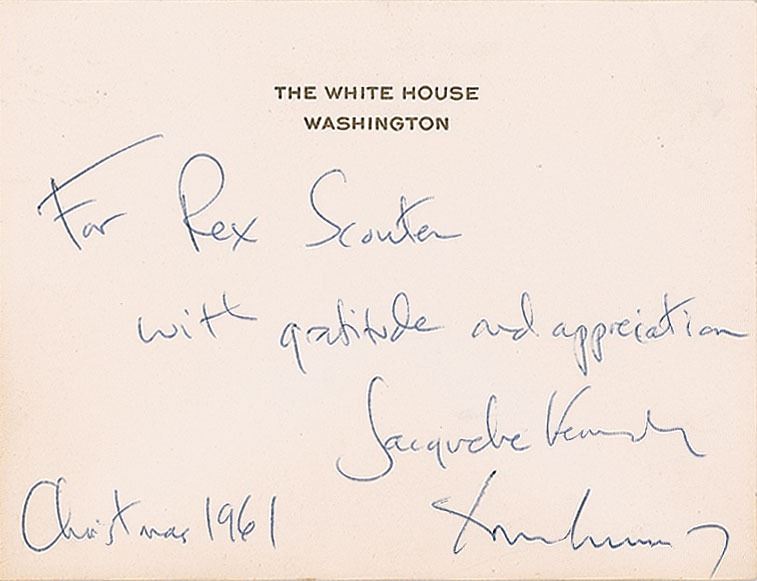 THE WHITE HOUSE
WASHINGTON
For Rex Scouten
with gratitude and appreciation
Jacqueline Kennedy
Christmas 1961